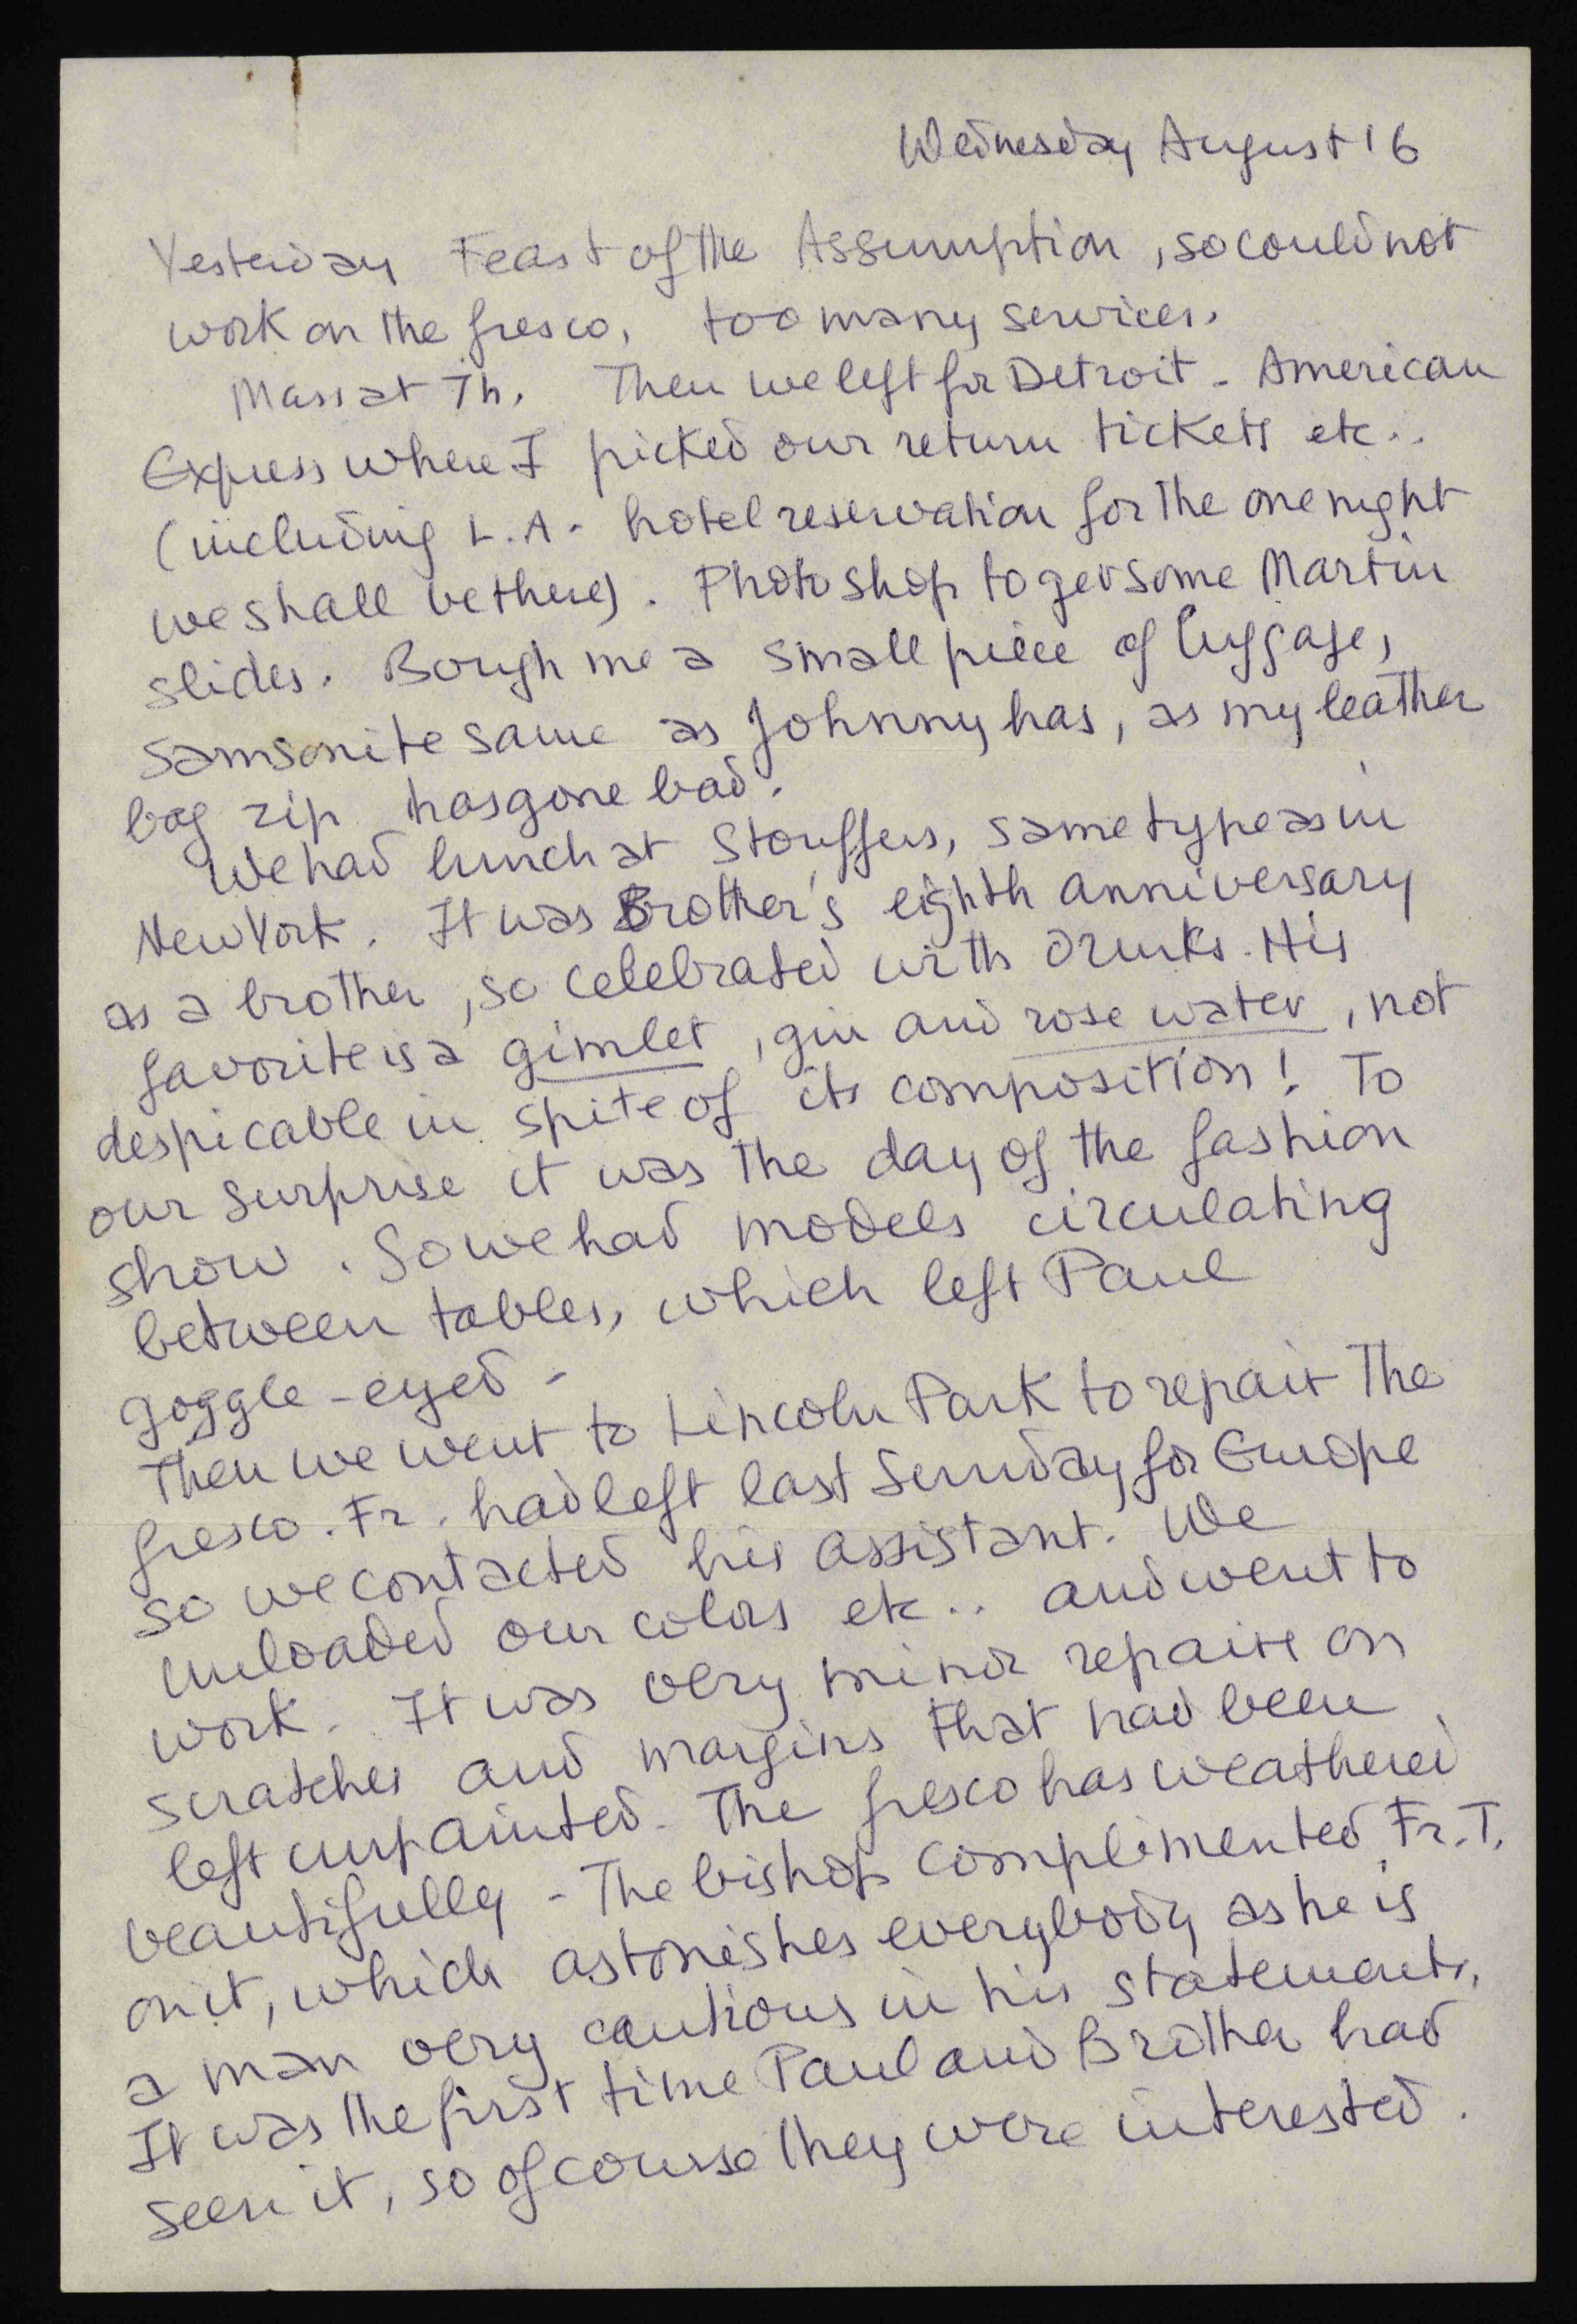 Wednesday August 16
Yesterday Feast of the Assumption, so could not
work on the fresco, too many services.
Mass at 7h. Then we left for Detroit - American
Express where I picked our return tickets etc..
(including L.A. hotel reservation for the one night
we shall be there). Photo shop to get some Martin
slides. Bough me a small piece of luggage,
Samsonite same as Johnny has, as my leather
bag zip has gone bad.
We had lunch at Stouffers, same type as in
New York. It was Brother's eighth anniversary
as a brother, so celebrated with drinks. His
favorite is a gimlet, gin and rose water, not
despicable in spite of its composition! To
our surprise it was the day of the fashion
show. So we had models circulating
between tables, which left Paul
goggle-eyed -
Then we went to Lincoln Park to repair the
fresco. Fr. had left last Sunday for Europe
so we contacted his assistant. We
unloaded our colors etc.. and went to
work. It was very minor repairs on
scratches and margins that had been
left unpainted. The fresco has weathered
beautifully - The bishop complimented Fr. T.
on it, which astonishes everybody as he is
a man very cautious in his statements.
It was the first time Paul and Brother had
seen it, so of course they were interested.